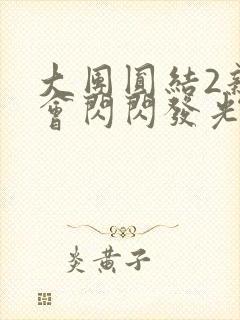 大團圓結2新
會閃閃發光
炎黃子